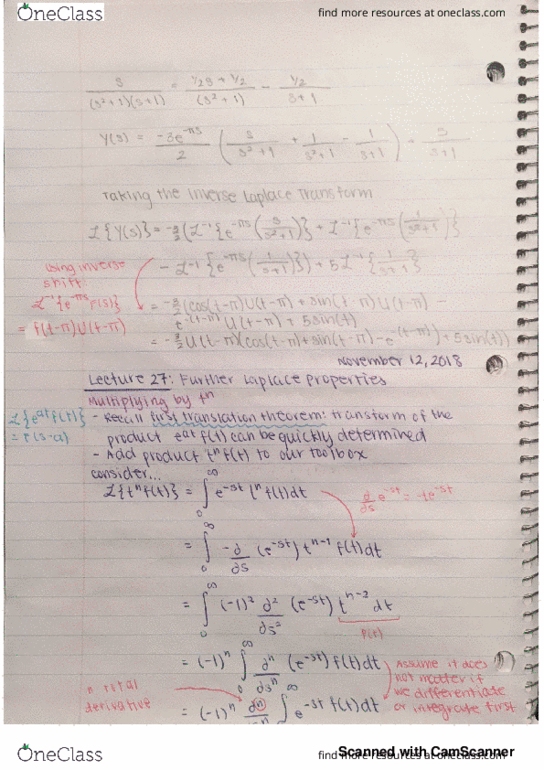 OneClass
find more resources at oneclass.com
s/((s²+1)(s+1)) = (1/2s + 1/2)/(s²+1) - (1/2)/(s+1)
Y(s) = -3e^-πs/2 (s/(s²+1) + 1/(s²+1) - 1/(s+1)) - 5/(s+1)
Taking the inverse Laplace Transform
ℒ{Y(s)} = -3/2(ℒ⁻¹{e^-πs(s/(s²+1))} + ℒ⁻¹{e^-πs(1/(s²+1))}
- ℒ⁻¹{e^-πs(1/(s+1))}) + 5ℒ⁻¹{1/(s+1)}
using inverse
shift:
ℒ⁻¹{e^-πs F(s)}
= f(t-π)U(t-π)
= -3/2(cos(t-π)U(t-π) + sin(t-π)U(t-π) -
e^-(t-π) U(t-π) + 5sin(t)
= -3/2U(t-π)(cos(t-π)+sin(t-π)-e^-(t-π)) + 5sin(t))
November 12, 2018
Lecture 27: Further Laplace Properties
Multiplying by tⁿ
ℒ{e^at f(t)}
= F(s-a)
- Recall first translation theorem: transform of the
product e^at f(t) can be quickly determined
- Add product tⁿf(t) to our toolbox
consider...
ℒ{tⁿf(t)} = ∫₀^∞ e^-st tⁿ f(t)dt
∂/∂s e^-st = -te^-st
= ∫₀^∞ -∂/∂s (e^-st) t^n-1 f(t)dt
= ∫₀^∞ (-1)² ∂²/∂s² (e^-st) t^n-2 dt
f(t)
= (-1)ⁿ ∫₀^∞ ∂ⁿ/∂sⁿ (e^-st) f(t)dt
Assume it does
not matter if
we differentiate
or integrate first
n total
derivative
= (-1)ⁿ dⁿ ∫ e^-st f(t)dt
OneClass
find more resources at oneclass.com
Scanned with CamScanner